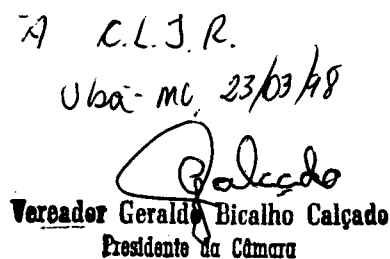 À C.L.J.R.
Ubá-MG, 23/03/98
Calçado
Vereador Geraldo Bicalho Calçado
Presidente da Câmara